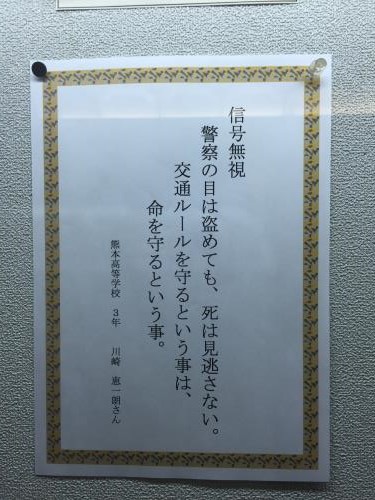 信号無視
警察の目は盗めても、死は見逃さない。
交通ルールを守るという事は、
命を守るという事。
熊本高等学校 3年 川崎 恵一朗さん